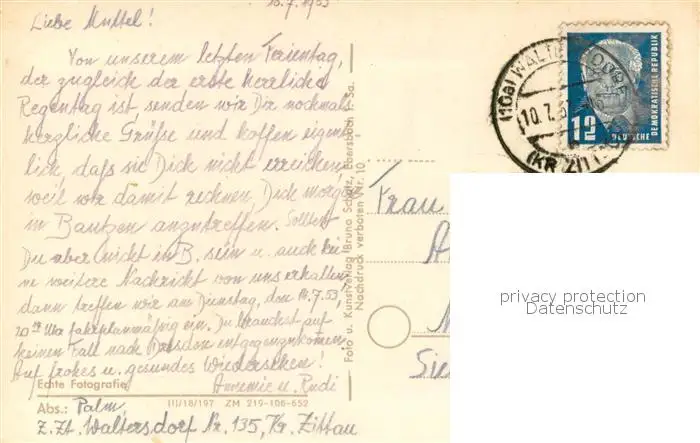 10.7.1953
Liebe Muttel!
Von unserem letzten Ferientag,
der zugleich der erste herrliche
Regentag ist senden wir Dir nochmals
herzliche Grüße und hoffen eigent-
lich, daß sie Dich nicht erreichen,
weil wir damit rechnen, Dich morgen
in Bautzen anzutreffen. Solltest
Du aber nicht in B. sein u. auch kei-
ne weitere Nachricht von uns erhalten
dann treffen wir am Dienstag, den 14.7.53,
20 Uhr fahrplanmäßig ein. Du brauchst auf
keinen Fall nach Dresden entgegenzukommen.
Auf frohes u. gesundes Wiedersehen!
Annemie u. Rudi
Echte Fotografie
(II)/18/197 ZM 219-106-652
Abs.: Palm,
z. Zt. Waltersdorf Nr. 135, Kr. Zittau
Foto u. Kunstverlag (Bruno Scholz, Ebersbach i. Sa.
Nachdruck verboten Nr. 10
(10a) WALTERSDORF
10.7.5
(KR ZITT
12
DEUTSCHE
DEMOKRATISCHE REPUBLIK
Frau
privacy protection
Datenschutz